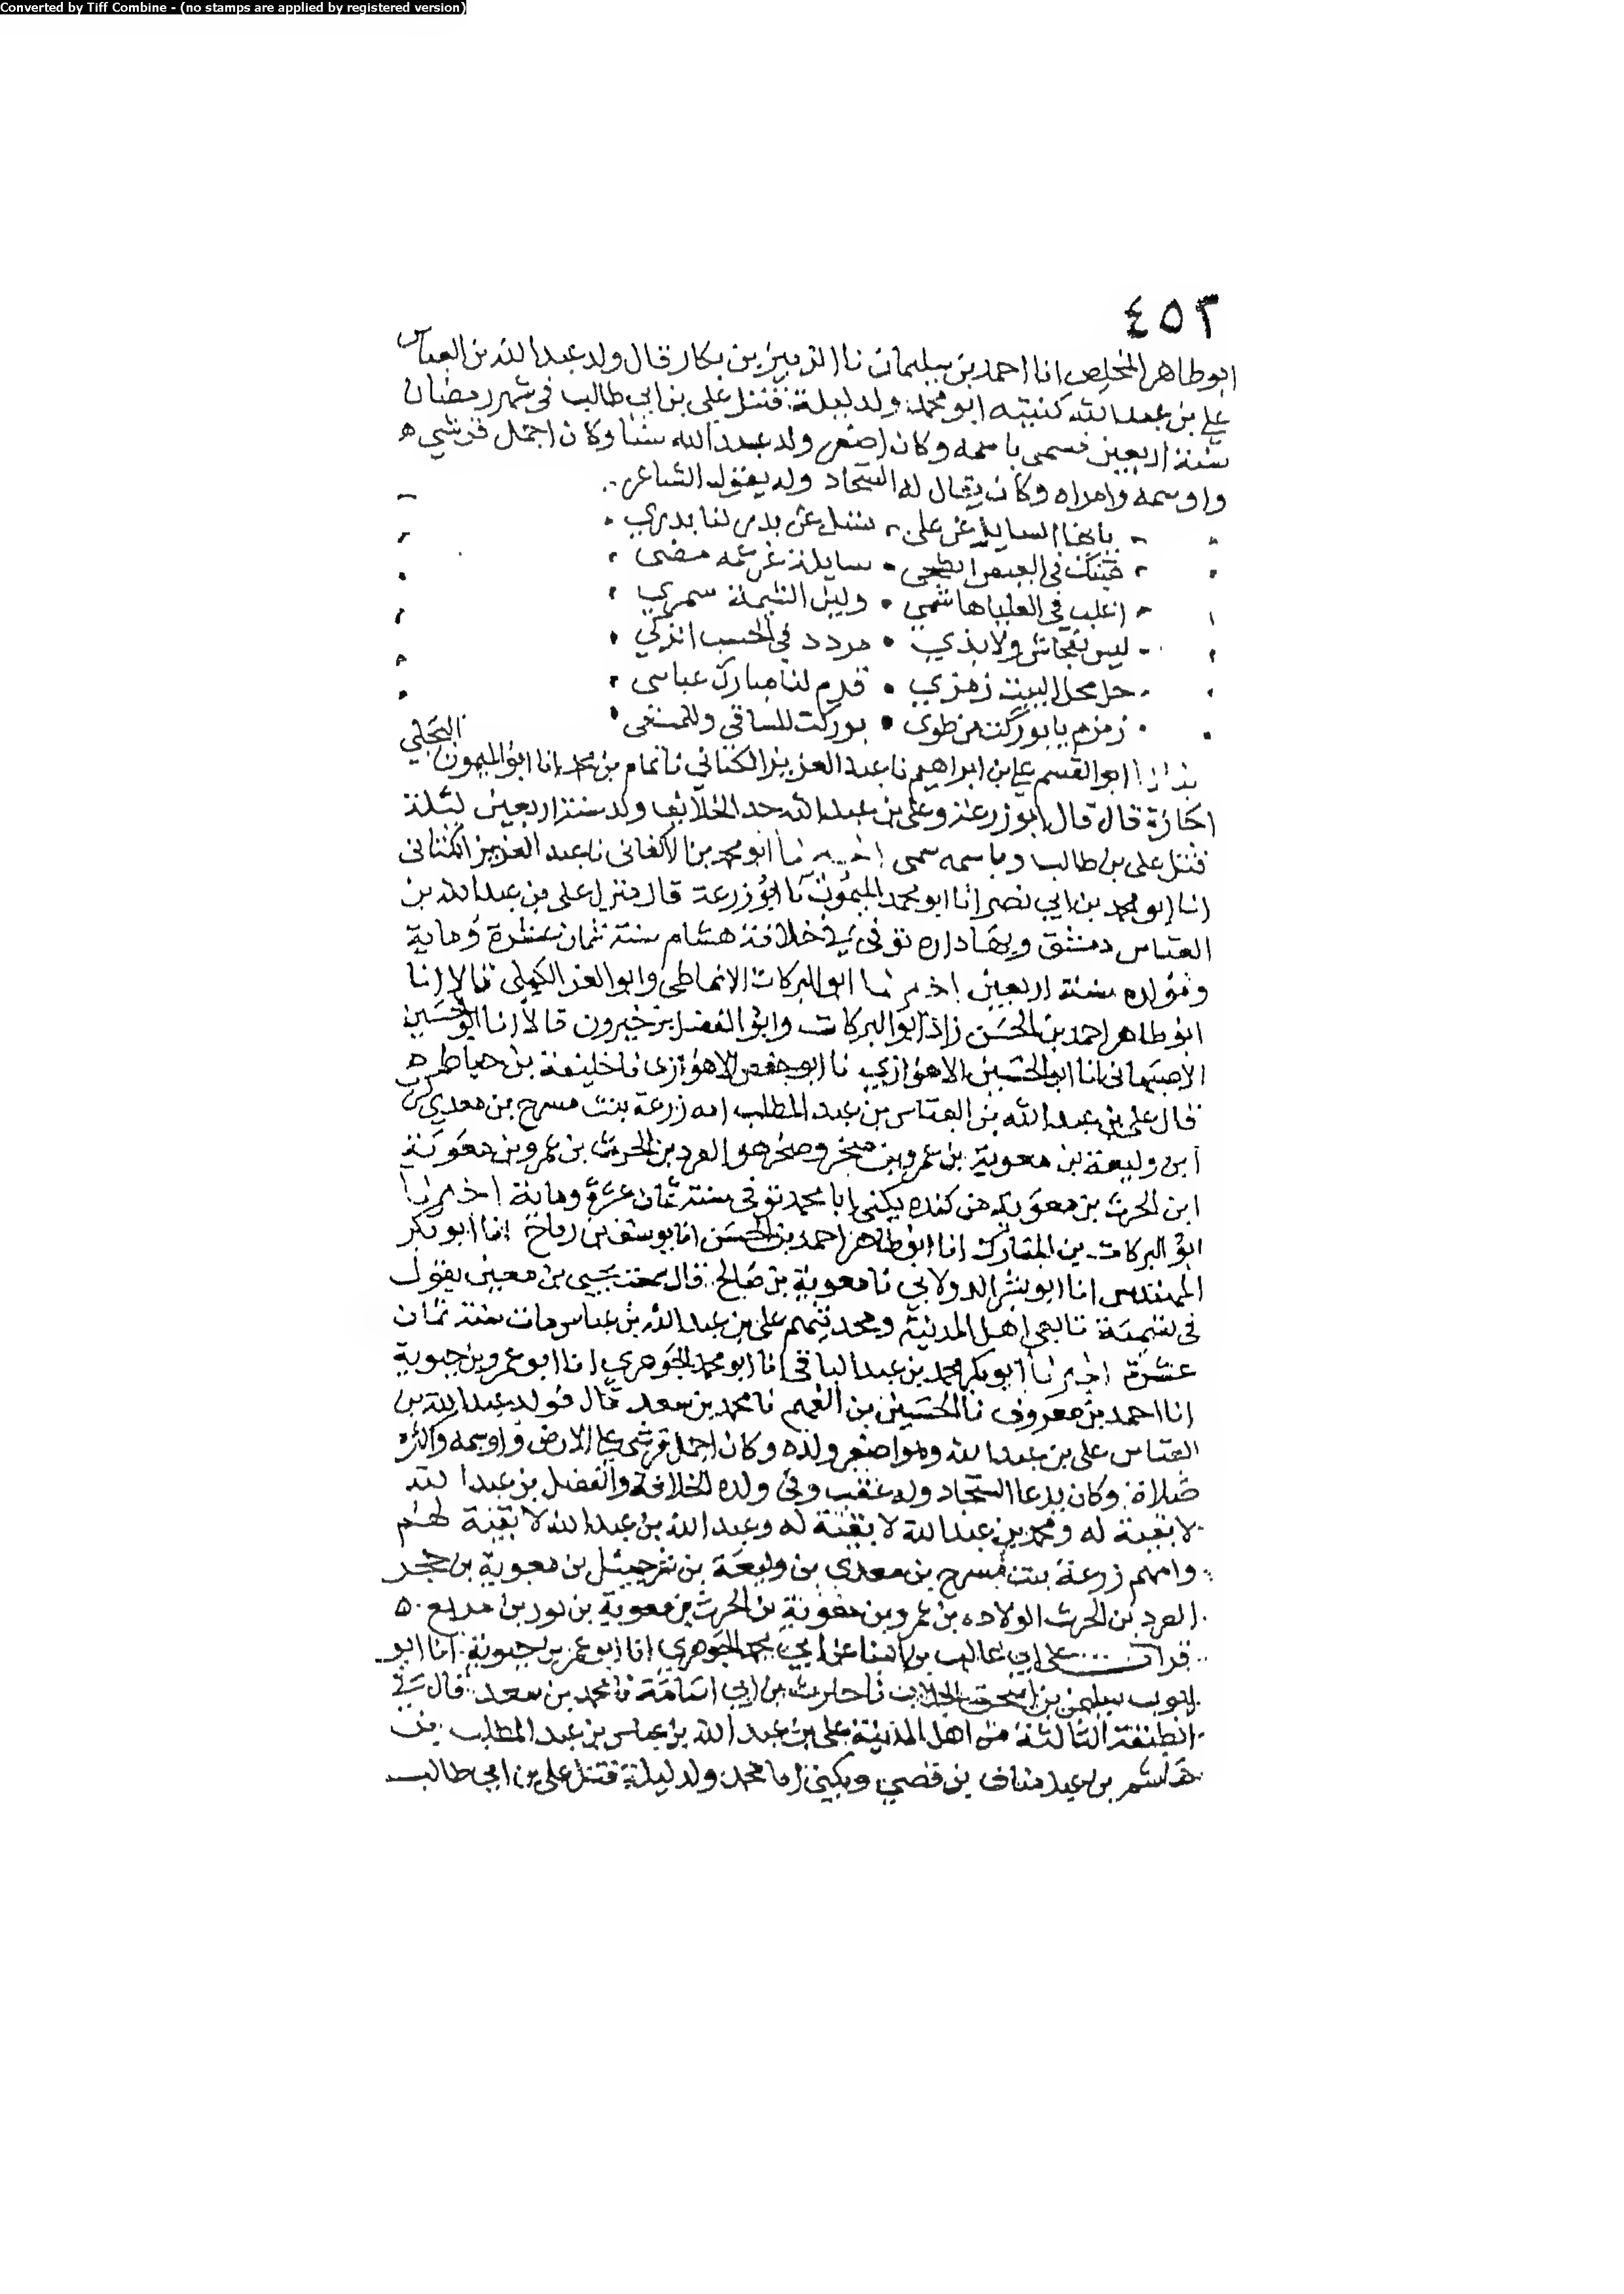 Converted by Tiff Combine - (no stamps are applied by registered version)
٤٥٢
ابو طاهر المخلص انا احمد بن سليمان نا الزبير بن بكار قال ولد عبد الله بن العباس
علي بن عبد الله كنيته ابو محمد ولد ليلة قتل علي بن ابي طالب في شهر رمضان
سنة اربعين فسمي باسمه وكان اصغر ولد عبد الله سنا وكان اجمل قرشي
واوسمه وامراه وكان يقال له السجاد وله يقول الشاعر
يا ايها السايل عن علي سل عن بدر لنا بدري
في العيص ابطحي سايلة غرته مضى
اغلب في العليا هاشمي ولين الشيمة سمري
ليس بفحاش ولا بذي مردد في الحسب الزكي
حل محل البيت زمزمي قرم لنا مبارك عباسي
زمزم يا بوركت من طوي بوركت للساقي وللمستقي
ابو القسم علي بن ابراهيم نا عبد العزيز الكتاني نا تمام بن محمد انا ابو الميمون البجلي
اجازة قال قال ابو زرعة وعلي بن عبد الله جد الخلائف ولد سنة اربعين ليلة
قتل علي بن طالب وباسمه سمي اخبرنا ابو محمد بن الاكفاني نا عبد العزيز الكتاني
انا ابو محمد بن ابي نصر انا ابو محمد الميمون نا ابو زرعة قال منزل علي بن عبد الله بن
العباس دمشق وبها داره توفي في خلافة هشام سنة ثمان عشرة وماية
ومولده سنة اربعين اخبرنا ابو البركات الانماطي وابو العز الكيلي قالا انا
ابو طاهر احمد بن الحسن زاد ابو البركات وابو الفضل بن خيرون قالا انا ابو الحسين
الاصبهاني انا ابو الحسين الاهوازي نا ابو حفص الاهوازي نا خليفة بن خياط
قال علي بن عبد الله بن العباس بن عبد المطلب امه زرعة بنت مسرح بن معدي كرب
ابن وليعة بن معوية بن عمرو بن صخر وصخر هو العرد بن الحرث بن عمرو بن معوية
ابن الحرث بن معوية من كنده يكنى ابا محمد توفي سنة ثمان عشرة وماية اخبرنا
ابو البركات بن المبارك انا ابو طاهر احمد بن الحسن انا يوسف بن رباح انا ابو بكر
المهندس انا ابو بشر الدولابي نا معوية بن صالح قال سمعت يحيى بن معين يقول
في تسمية تابعي اهل المدينة ومحدثيهم علي بن عبد الله بن عباس مات سنة ثمان
عشرة اخبرنا ابو بكر محمد بن عبد الباقي انا ابو محمد الجوهري انا ابو عمرو بن حيوية
انا احمد بن معروف نا الحسين بن الفهم نا محمد بن سعد قال فولد عبد الله بن
العباس علي بن عبد الله وهو اصغر ولده وكان اجمل قرشي على الارض واوسمه واكثره
صلاة وكان يدعا السجاد وله عقب وفي ولده الخلافة والفضل بن عبد الله
لا بقية له ومحمد بن عبد الله لا بقية له وعبد الله بن عبد الله لا بقية لهم
وامهم زرعة بنت مسرح بن معدي بن وليعة بن شرحبيل بن معوية بن حجر
العرد بن الحرث الولاده بن عمرو بن معوية بن الحرث بن معوية بن ثور بن مريع
قرات على ابي غالب بن البنا عن ابي محمد الجوهري انا ابو عمر بن حيوية انا ابو
ايوب سليمن بن اسحق الجلاب نا حارث بن ابي اسامة نا محمد بن سعد قال في
الطبقة الثالثة من اهل المدينة علي بن عبد الله بن عباس بن عبد المطلب بن
هاشم بن عبد مناف بن قصي ويكنى ابا محمد ولد ليلة قتل علي بن ابي طالب